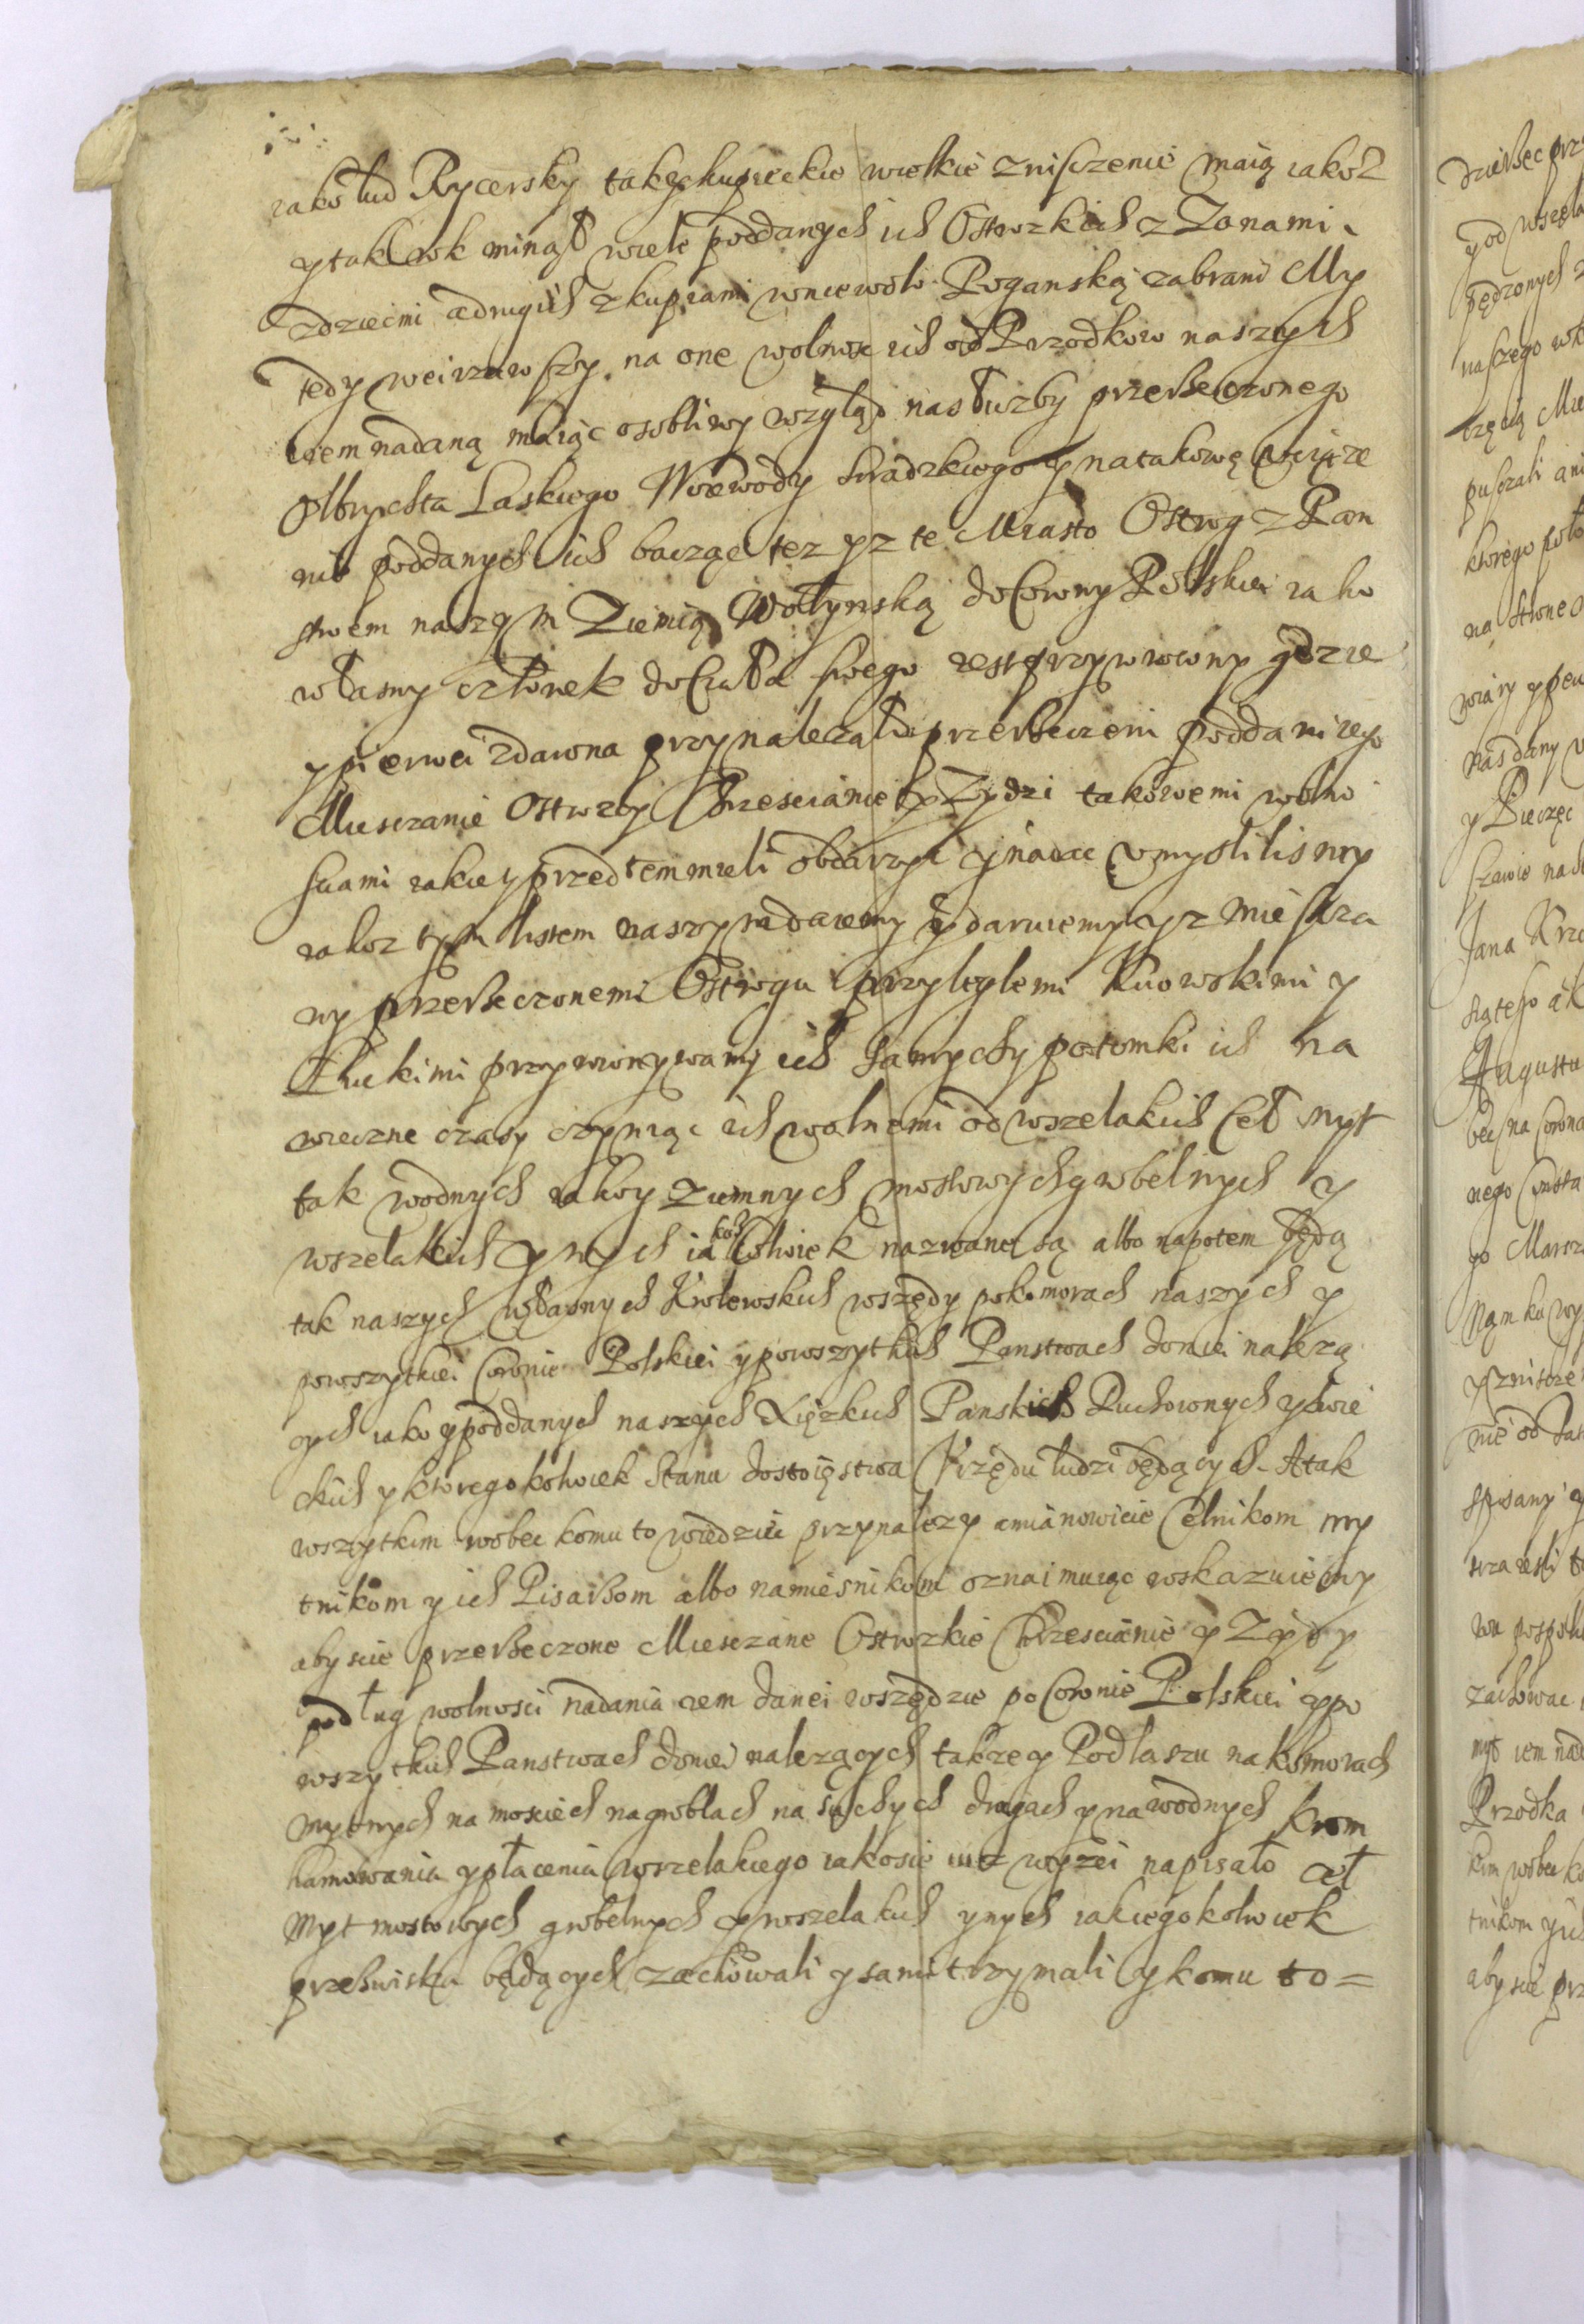 iako lud Rycersky tak y kupieckie wielkie zniszczenie maią iakoż
y tak rok minął wiele poddanych ich Ostrozkich z Zonami
z dziecmi a drugich z kupiami w niewolo Poganską zabrani My
tedy weirzawszy na one wolnosc ich od Przodkow naszych
iem nadaną maiąc osobliwy wzgląd na służby przerzeczonego
Olbrychta Laskiego Woiewody Siradzkiego y na takową ucięże
nie poddanych ich bacząc tez yz te Miasto Ostrog z Pan
stwem naszym Ziemią Wołynską do Corony Polskiei iako
własny członek do Ciała swego iest przywrocony gdzie
y pierwei zdawna przynalezało przerzeczeni poddani iego
Miesczanie Ostrozcy Chrzescianie y Zydzi takowemi wolno
sciami iakie y przedtem mieli obdarzyć y nadac umyslilismy
iakoz tym listem naszym nadaiemy y daruiemy y z miesczа
ny przerzeczonemi Ostrogu przyleglemi Kiiowskimi y
Łuckimi przyrownywamy ich samych y potomki ich na
wieczne czasy czyniąc ich wolnemi od wszelakich Ceł myt
tak wodnych iako y ziemnych mostowych grobelnych y
wszelakich ynych iakożkolwiek nazwane są albo napotem będą
tak naszych własnych Krolewskich wszędy po komorach naszych y
po wszytkiei Coronie Polskiei y po wszytkich Panstwach do niei nalezą
cych iako y poddanych naszych Xięzkich Panskich Duchownych y Swie
ckich y ktoregokolwiek Stanu dostoięstwa Vrzędu ludzi będących. A tak
wszytkim wobec komu to wiedziec przynalezy a mianowicie Celnikom my
tnikom y ich Pisarzom albo namiesnikom oznaimuiąc roskazuiemy
abyscie przerzeczone Miesczane Ostrozkie Chrzescianie y Zydy
podług wolnosci nadania iem danei wszędzie po Coronie Polskiei y po
wszytkich Panstwach do niei nalezących takze y Podlaszu na komorach
mytnych na mosciech na groblach na suchych drogach y na wodnych krom
hamowania y płacenia wszelakiego iako sie iuz wyzei napisało ceł
myt mostowych grobelnych y wszelakich ynych iakiegokolwiek
przezwiska będących zachowali y sami trzymali y komu to=